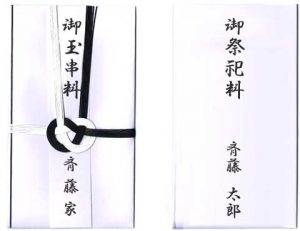 御玉串料
斉藤家
御祭祀料
斉藤 太郎